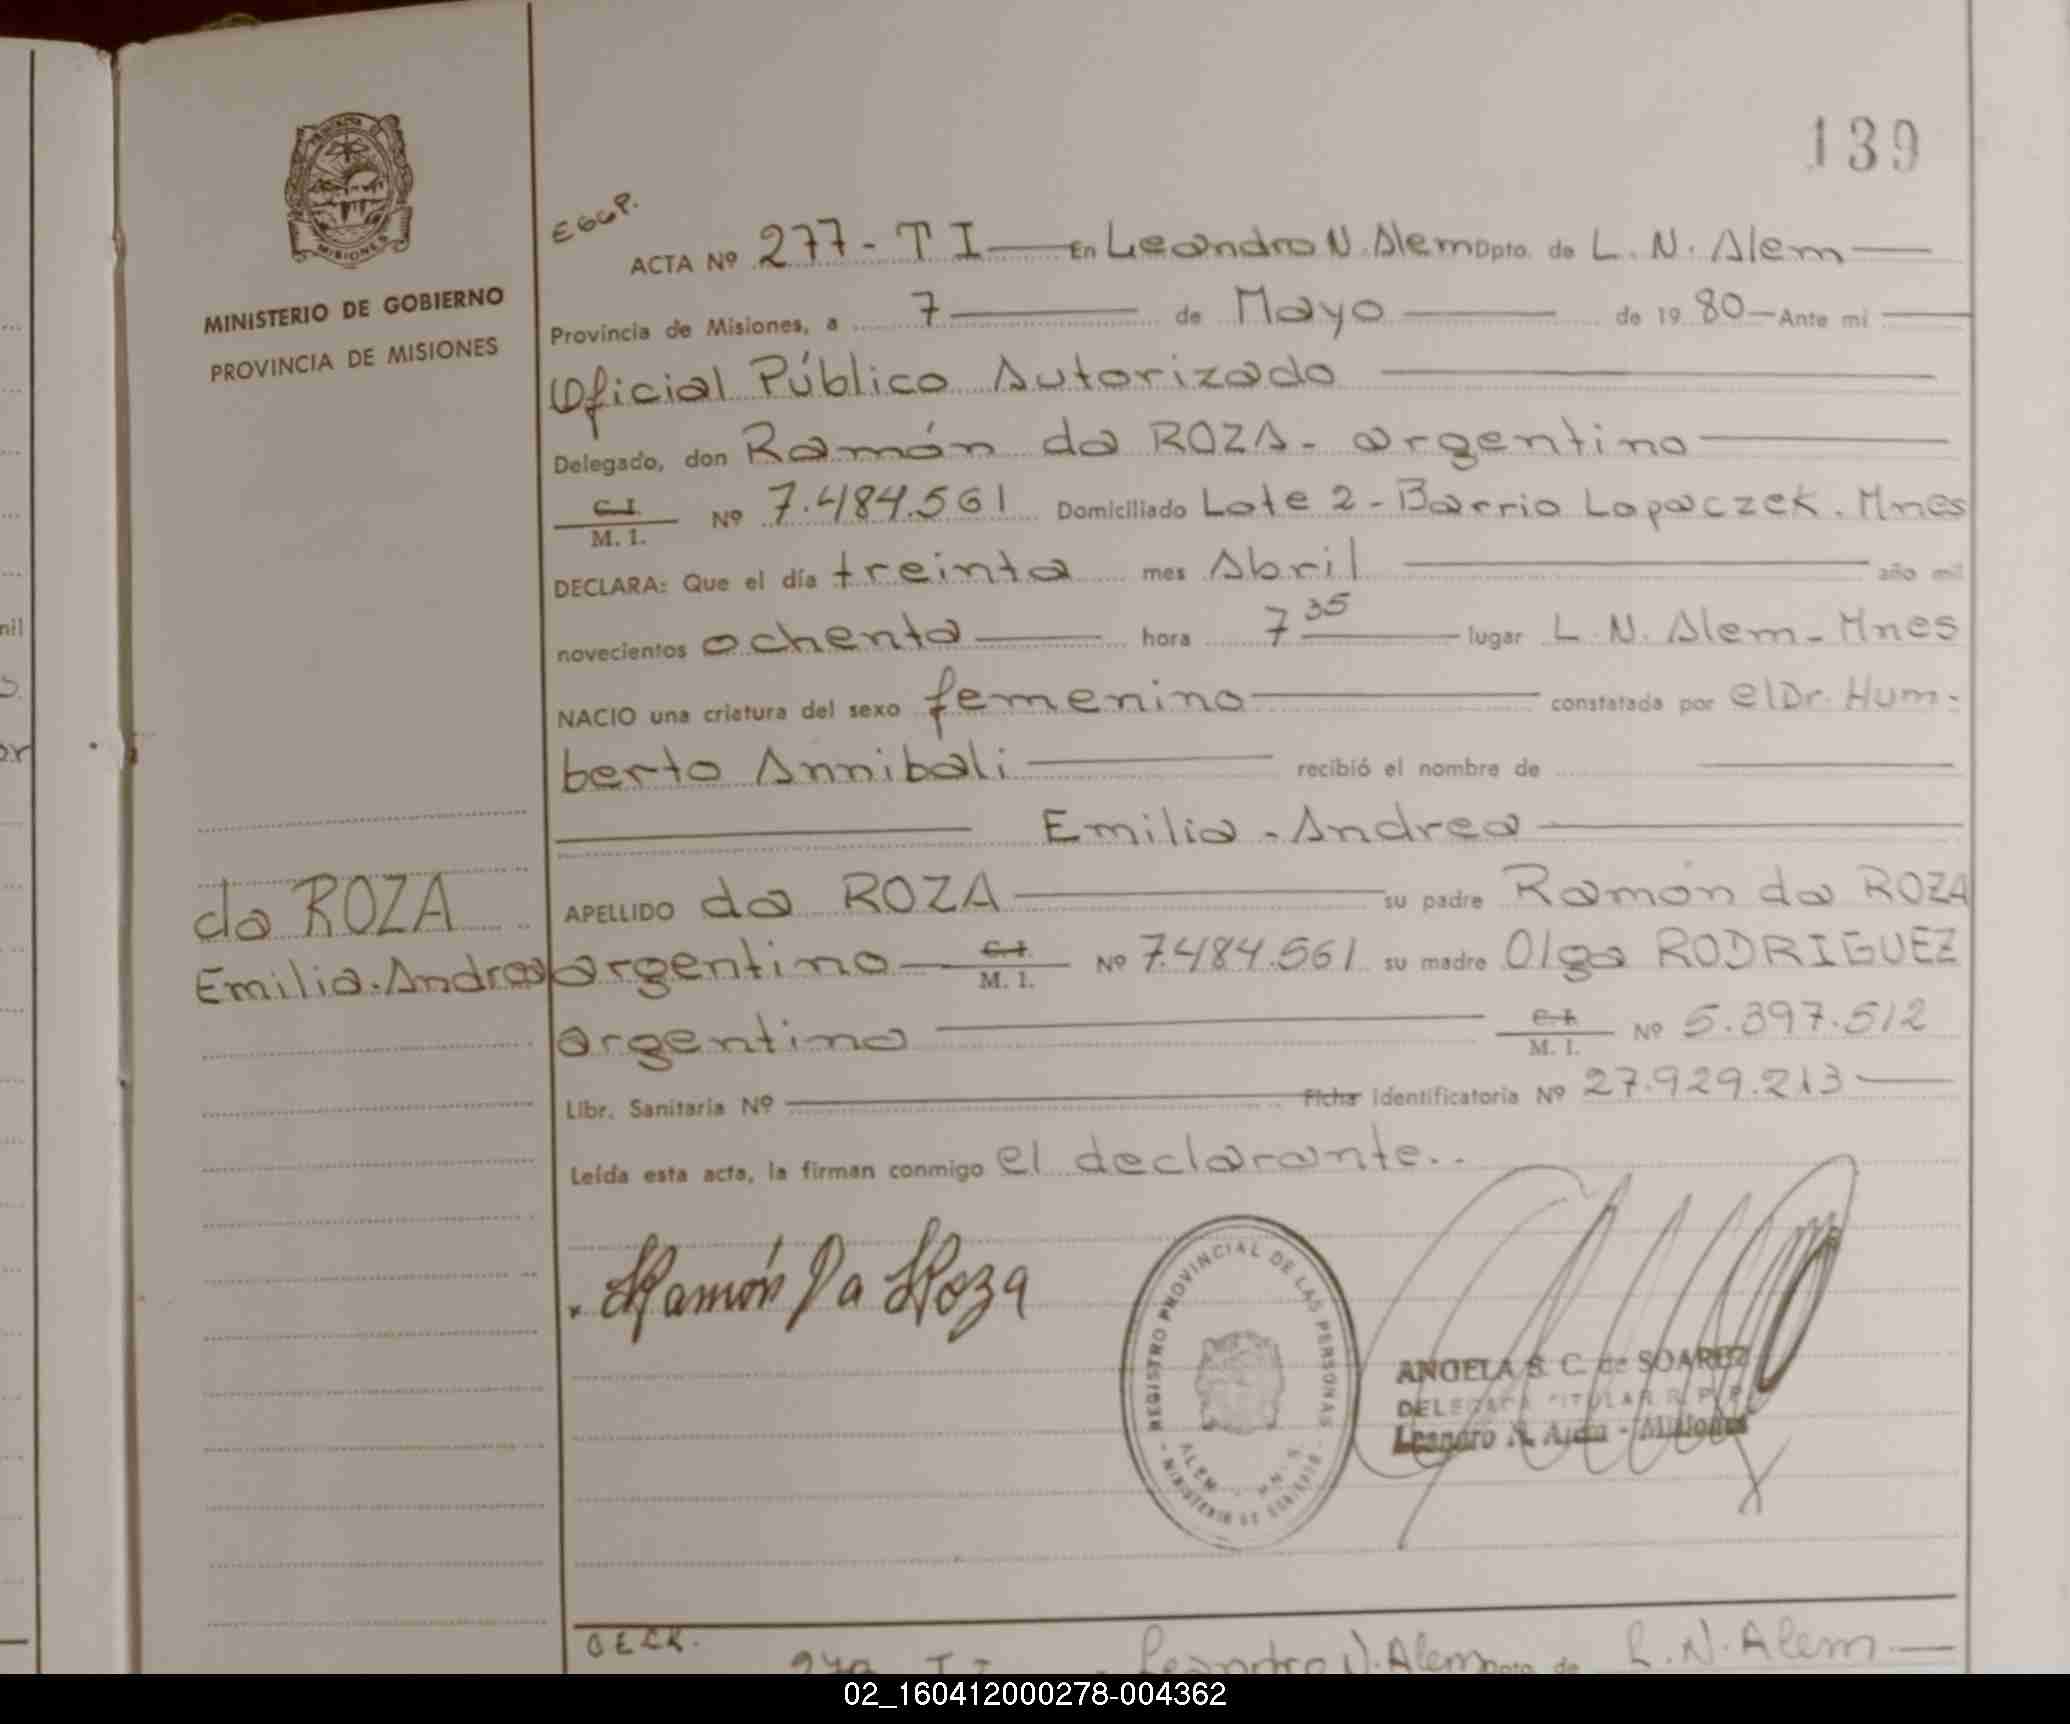 MISIONES
MINISTERIO DE GOBIERNO
PROVINCIA DE MISIONES
139
ACTA Nº 277 - T I En Leandro N. Alem Dpto. de L. N. Alem
Provincia de Misiones, a 7 de Mayo de 19 80 Ante mi
Oficial Público Autorizado
Delegado, don Ramón da ROZA - argentino
C. I. M. I. Nº 7.484.561 Domiciliado Lote 2 - Barrio Lapaczek. Mnes
DECLARA: Que el día treinta mes Abril año mil
novecientos ochenta hora 7 35 lugar L. N. Alem - Mnes
NACIO una criatura del sexo femenino constatada por el Dr. Hum-
berto Annibali recibió el nombre de
Emilia - Andrea
APELLIDO da ROZA su padre Ramón da ROZA
argentino C. I. M. I. Nº 7.484.561 su madre Olga RODRIGUEZ
argentina C. I. M. I. Nº 5.397.512
Libr. Sanitaria Nº Ficha identificatoria Nº 27.929.213
Leída esta acta, la firman conmigo el declarante..
da ROZA
Emilia - Andrea
Ramón Da Roza
REGISTRO PROVINCIAL DE LAS PERSONAS
ALEM - MN-S
- MINISTERIO DE GOBIERNO -
ANGELA S. C. de SOAREZ
DELEGADA TITULAR R. P. P.
Leandro N. Alem - Misiones
Leandro N. Alem Dpto. de L. N. Alem
02_160412000278-004362